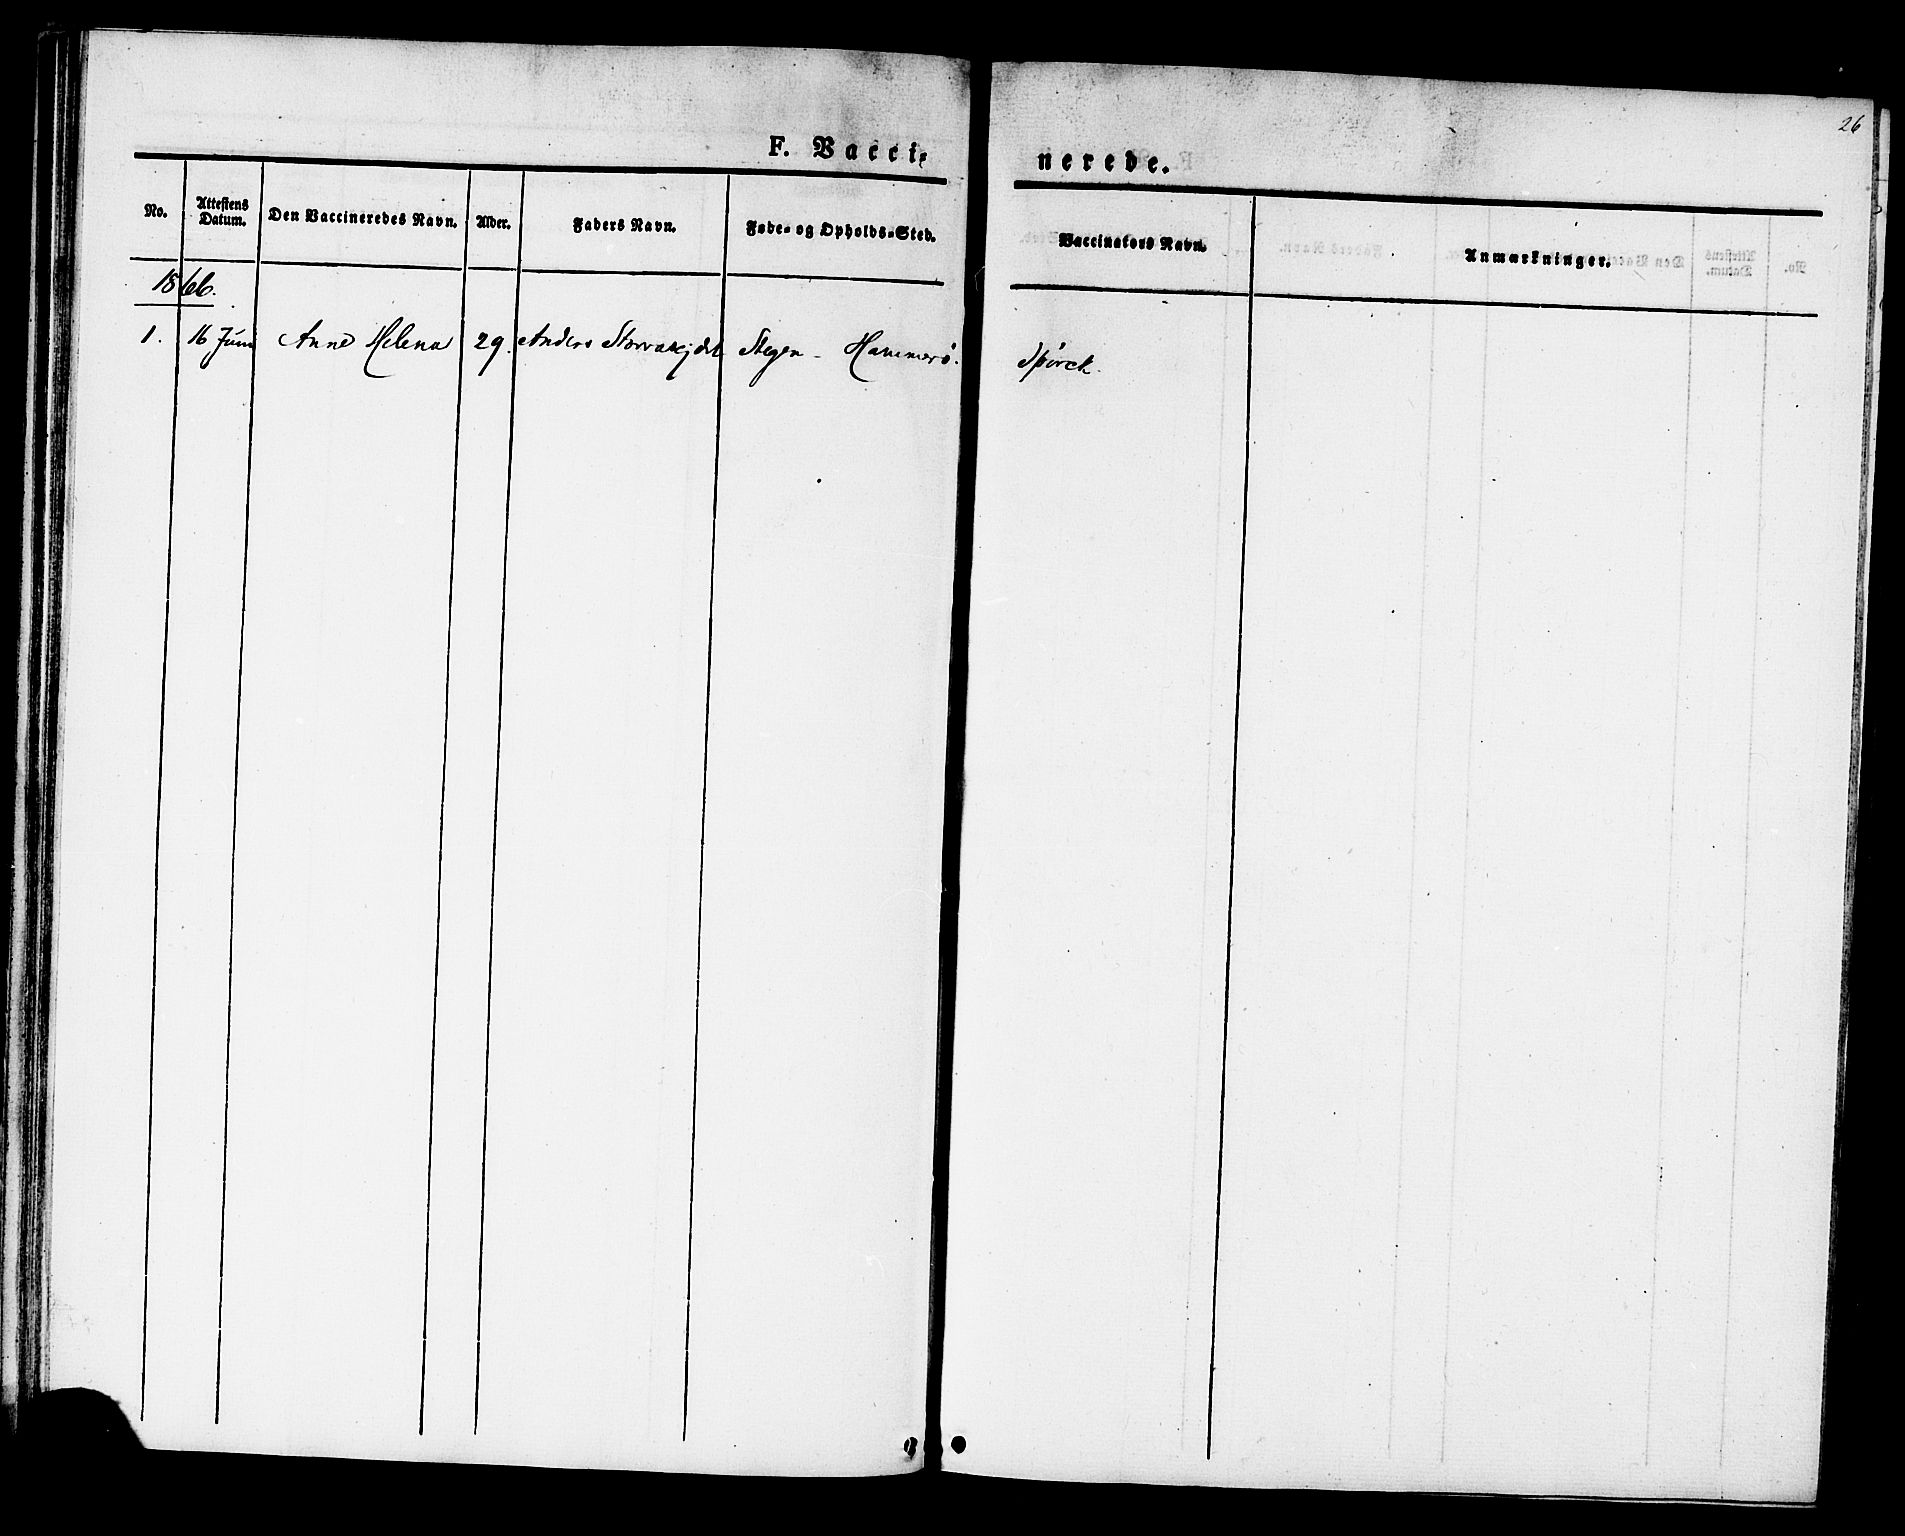 26
F. Vacci-
nerede.
No.
Attestens Datum.
Den Vaccineredes Navn.
Alder.
Faders Navn.
Føde- og Opholds-Sted.
Vaccinatørs Navn.
Anmærkninger.
1866.
1. 16 Juni Anne Helena 29. Anders Stegen - Hammerø. Spörck.